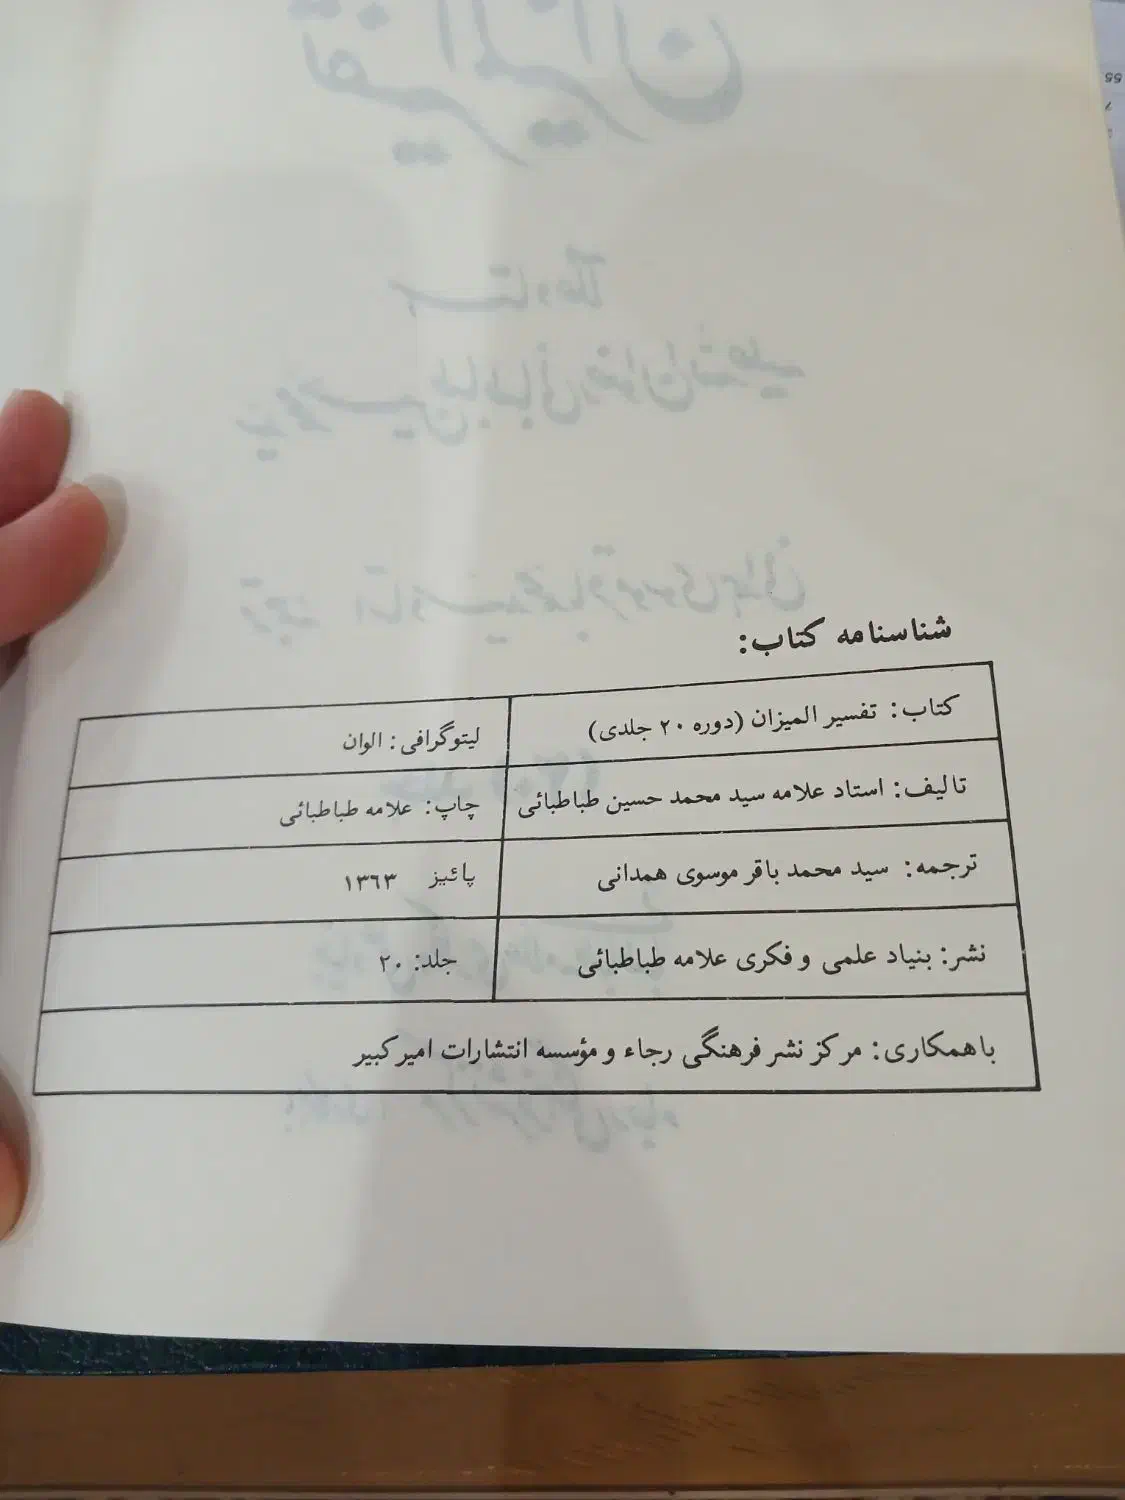 شناسنامه کتاب:
کتاب: تفسیر المیزان (دوره ۲۰ جلدی)
لیتوگرافی: الوان
تالیف: استاد علامه سید محمد حسین طباطبائی
چاپ: علامه طباطبائی
ترجمه: سید محمد باقر موسوی همدانی
پائیز ۱۳۶۳
نشر: بنیاد علمی و فکری علامه طباطبائی
جلد: ۲۰
باهمکاری: مرکز نشر فرهنگی رجاء و مؤسسه انتشارات امیرکبیر